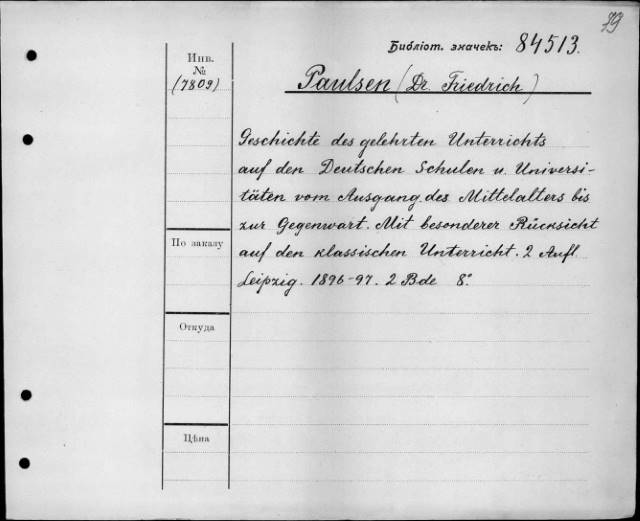 79
Библіот. значекъ: 84513.
Инв.
№
(7809)
Paulsen (Dr. Friedrich)
Geschichte des gelehrten Unterrichts
auf den Deutschen Schulen u. Universi-
täten vom Ausgang des Mittelalters bis
zur Gegenwart. Mit besonderer Rücksicht
auf den klassischen Unterricht. 2 Aufl.
Leipzig. 1896-97. 2 Bde 8º.
По заказу
Откуда
Цѣна